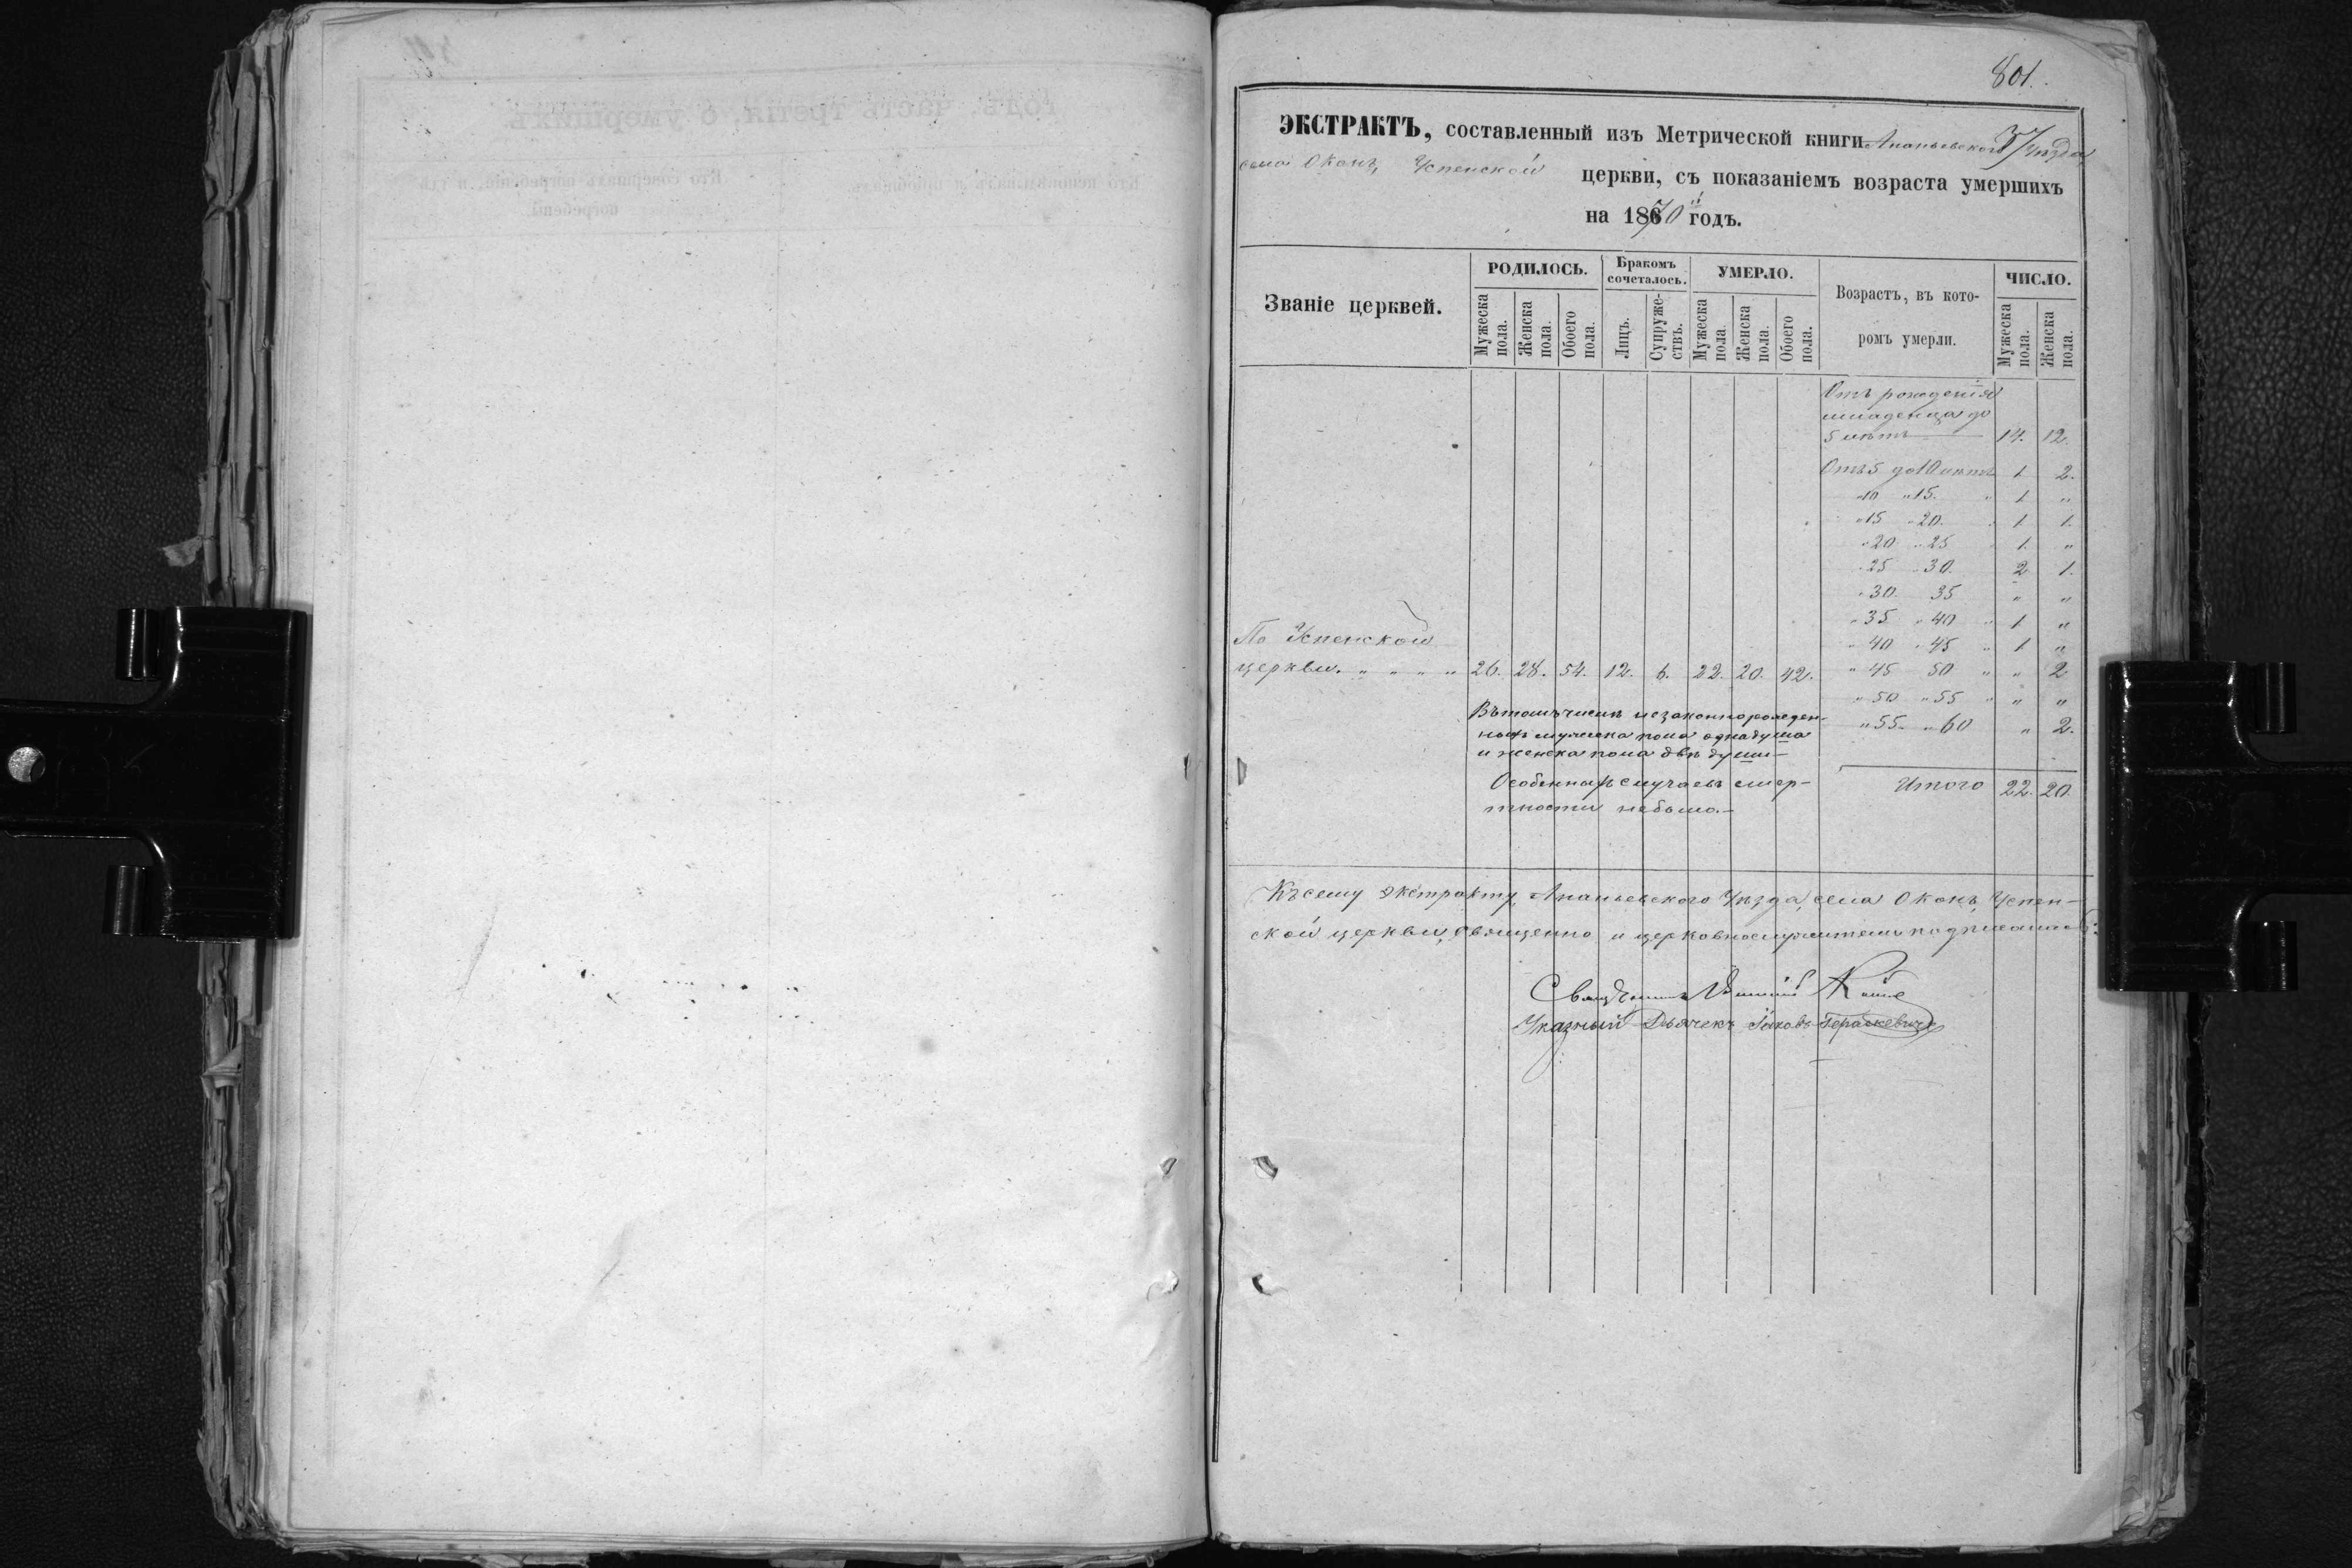 801.
ЭКСТРАКТЪ, составленный изъ Метрической книги Ананьевского Уѣзда
села Оконъ, Успенской церкви, съ показаніемъ возраста умершихъ
на 1870й годъ.
Званіе церквей.
РОДИЛОСЬ.
Мужеска пола.
Женска пола.
Обоего пола.
Бракомъ сочеталось.
Лицъ.
Супружествъ.
УМЕРЛО.
Мужеска пола.
Женска пола.
Обоего пола.
Возрастъ, въ кото-
ромъ умерли.
ЧИСЛО.
Мужеска пола.
Женска пола.
Отъ рожденія
младенца до
5 лѣтъ 14. 12.
Отъ 5 до 10 лѣтъ 1 2.
" 10 " 15. " 1 "
" 15 " 20. 1 1.
" 20 " 25 1. "
" 25 " 30. 2 1.
" 30. 35 " "
" 35 " 40 " 1 "
" 40 " 45 " 1 "
" 45 50 " " 2
" 50 " 55 " " "
" 55. " 60 " 2.
Итого 22. 20.
По Успенской
церкви. " " " " 26. 28. 54. 12. 6. 22. 20. 42.
Въ томъ числѣ незаконнорожден-
ныхъ мужеска пола одна душа
и женска пола двѣ души —
Особенныхъ случаевъ смер-
тности небыло. —
Къ сему экстракту, Ананьевского Уѣзда, села Оконъ, Успен-
ской церкви, священно и церковнослужители подписались:
Священникъ
Указный Дьячекъ Іаковъ Гераскевичъ